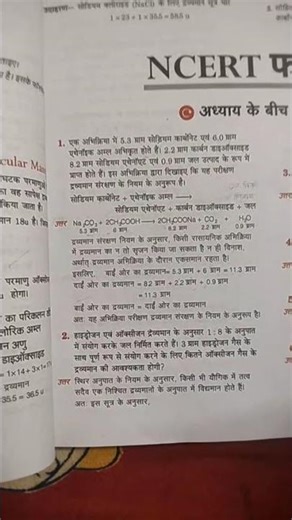 उदाहरण— सोडियम क्लोराइड (NaCl) के लिए द्रव्यमान सूत्र
1 × 23 + 1 × 35.5 = 58.5 u
NCERT
अध्याय के बीच
1. एक अभिक्रिया में 5.3 ग्राम सोडियम कार्बोनेट एवं 6.0 ग्राम
एथेनॉइक अम्ल अभिकृत होते हैं। 2.2 ग्राम कार्बन डाइऑक्साइड
8.2 ग्राम सोडियम एथेनॉएट एवं 0.9 ग्राम जल उत्पाद के रूप में
प्राप्त होते हैं। इस अभिक्रिया द्वारा दिखाइए कि यह परीक्षण
द्रव्यमान संरक्षण के नियम के अनुरूप है।
सोडियम कार्बोनेट + एथेनॉइक अम्ल ⟶
सोडियम एथेनॉएट + कार्बन डाइऑक्साइड + जल
उत्तर Na₂CO₃ + 2CH₃COOH ⟶ 2CH₃COONa + CO₂ + H₂O
5.3 ग्राम 6 ग्राम 8.2 ग्राम 2.2 ग्राम 0.9 ग्राम
द्रव्यमान संरक्षण नियम के अनुसार, किसी रासायनिक अभिक्रिया
में द्रव्यमान का न तो सृजन किया जा सकता है न ही विनाश,
अर्थात् द्रव्यमान अभिक्रिया के दौरान एकसमान रहता है।
इसलिए, बाईं ओर का द्रव्यमान= 5.3 ग्राम + 6 ग्राम = 11.3 ग्राम
दाईं ओर का द्रव्यमान = 8.2 + 2.2 ग्राम + 0.9 ग्राम
= 11.3 ग्राम
बाईं ओर का द्रव्यमान = दाईं ओर का द्रव्यमान
अतः यह अभिक्रिया परीक्षण द्रव्यमान संरक्षण के नियम के अनुरूप है।
2. हाइड्रोजन एवं ऑक्सीजन द्रव्यमान के अनुसार 1 : 8 के अनुपात
में संयोग करके जल निर्मित करते हैं। 3 ग्राम हाइड्रोजन गैस के
साथ पूर्ण रूप से संयोग करने के लिए कितने ऑक्सीजन गैस के
द्रव्यमान की आवश्यकता होगी?
उत्तर स्थिर अनुपात के नियम के अनुसार, किसी भी यौगिक में तत्व
सदैव एक निश्चित द्रव्यमानों के अनुपात में विद्यमान होते हैं।
अतः इस सूत्र के अनुसार,